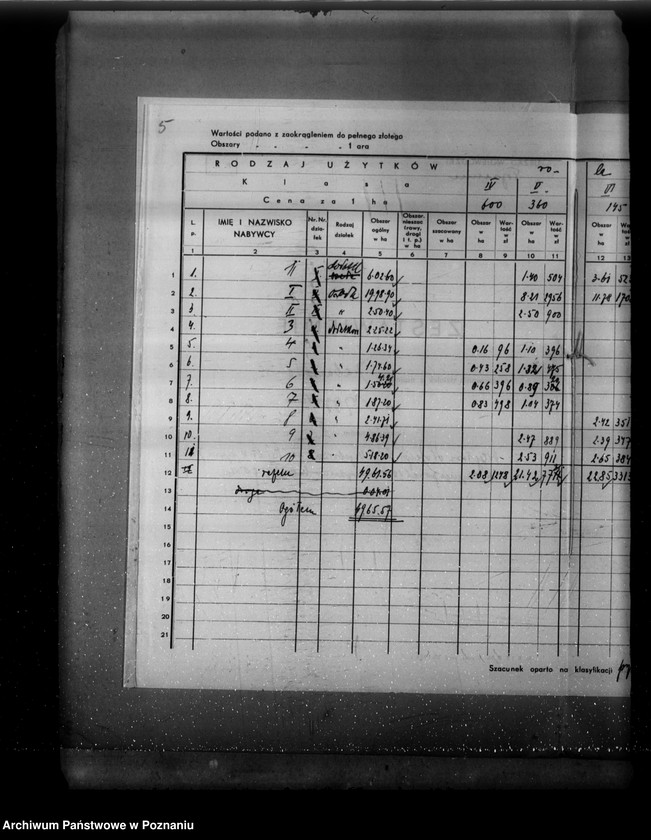 5
Wartości podano z zaokrągleniem do pełnego złotego
Obszary . . . . 1 ara
RODZAJ UŻYTKÓW ro- la
Klasa IV V VI
Cena za 1 ha 600 360 145
L. p. IMIĘ I NAZWISKO NABYWCY Nr. Nr. działek Rodzaj działek Obszar ogólny w ha Obszar. nieszac (rowy, drogi i t. p.) w ha Obszar szacowany w ha Obszar w ha Wartość w zł Obszar w ha Wartość w zł Obszar w ha
1 2 3 4 5 6 7 8 9 10 11 12 13
1 1. 6.02.60 1.40 504 3.61
2 2. I 19.98.90 8.21 2956 11.78
3 3. II " 2.50.40 2.50 900
4 4. 3 2.25.22
5 5. 4 " 1.26.34 0.16 96 1.10 396
6 6. 5 " 1.74.60 0.43 258
7 7. 6 " 0.66 396 0.89
8 8. 7 " 1.87.20 0.83 498 1.04 374
9 9. 8 " 2.41.71 2.42 351
10 10. 9 " 4.86.39 2.47 889 2.39 347
11 10 " 5.18.20 2.53 911 2.65 384
12 razem 49.61.56 2.08 1248 21.42 22.85
13 droga 0.04.01
14 Ogółem 49.65.57
15
16
17
18
19
20
21
Szacunek oparto na klasyfikacji
Archiwum Państwowe w Poznaniu